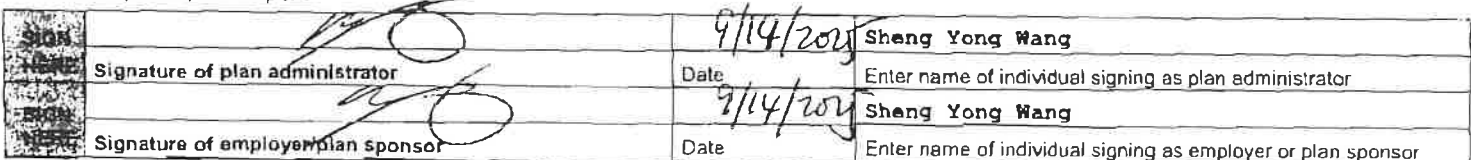 SIGN 9/14/2025 Sheng Yong Wang
HERE Signature of plan administrator Date Enter name of individual signing as plan administrator
SIGN 9/14/2025 Sheng Yong Wang
HERE Signature of employer/plan sponsor Date Enter name of individual signing as employer or plan sponsor